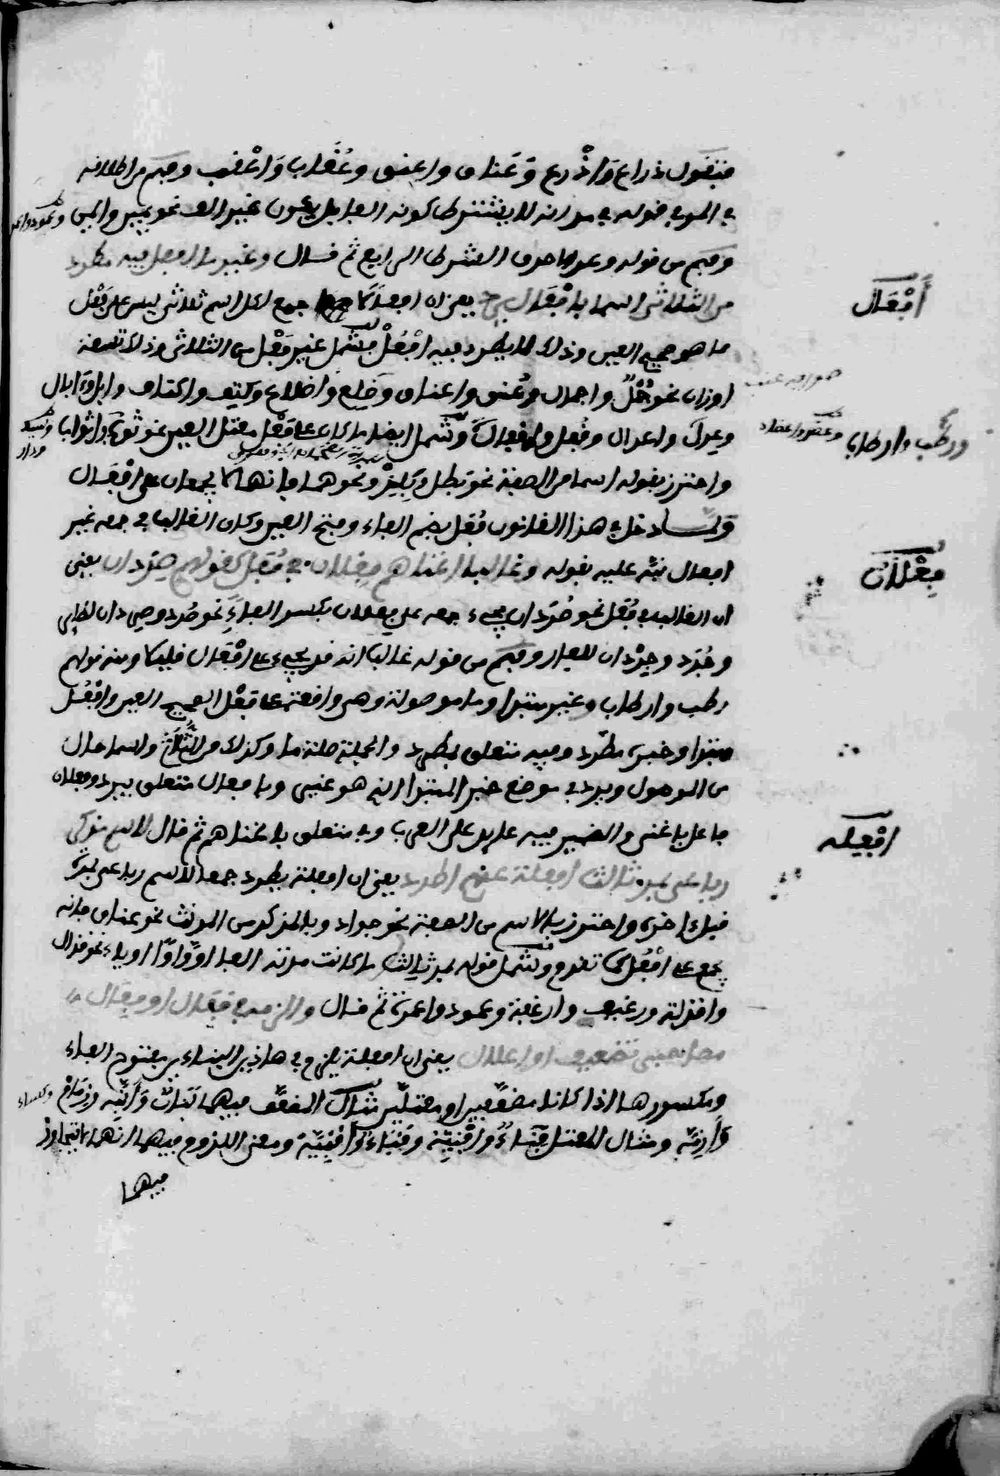 فتقول ذراع وأذرع وعناق واعنق وعقاب واعقب وفهم من اطلاقه
في المد في قوله في مد انه لا يشترط كونه الفا بل يكون غير الف نحو يمين وايمن
وفهم من قوله وعد الاحرف الشرط الرابع ثم قال وغير ما افعل فيه مطرد
من الثلاثي اسما بافعال يرد يعني ان افعالا جمع لكل اسم ثلاثي ليس على فعل
ما هو صحيح العين وذلك لا يطرد فيه افعل فشمل غير فعل من الثلاثي وذلك تسعة
اوزان نحو واجمال وعنق واعناق وضلع واضلاع وكتف واكتاف وابل وابال
وعدل واعدال وقفل واقفال وشمل ايضا ما كان على فعل معتل العين نحو ثوب واثواب
واحترز بقوله اسما من الصفة نحو بطل ونحوهما فانهما لا يجمعان على افعال
ولما دخل في هذا القانون فعل بضم الفاء وفتح العين وكان الغالب في جمعه غير
افعال نبه عليه بقوله وغالبا اغناهم فعلان في فعل كقولهم صردان يعني
ان الغالب في فعل نحو صرد ان يجيء جمعه على فعلان بكسر الفاء نحو صرد وصردان لطائر
وجرذ وجرذان للفار وفهم من قوله غالبا انه قد يجيء على افعال قليلا ومنه قولهم
رطب وارطاب وغير مبتدا وما موصولة وهي واقعة على فعل الصحيح العين وافعل
مبتدا وخبره مطرد وفيه متعلق بمطرد والجملة صلة ما وكذلك من الثلاثي واسما حال
من الموصول ويرد في موضع خبر المبتدا الذي هو غير وبافعال متعلق بيرد وفعلان
فاعل باغنى والضمير فيه عايد على العرب وفي متعلق باغناهم ثم قال لاسم مذكر
رباعي بمد ثالث افعلة عنهم اطرد يعني ان افعلة يطرد جمعا لاسم رباعي بمدة
قبل اخره واحترز بالاسم من الصفة نحو جواد وبالمذكر من المونث نحو عناق فانه
يجمع على افعل كما تقدم وشمل قوله بمد ثالث ما كانت مدته الفا او واوا او ياء نحو قذال
واقذلة ورغيف وارغفة وعمود واعمدة ثم قال والزمه في فعال او فعال
مصاحبي تضعيف او اعلال يعني ان افعلة يلزم في هاذين البناءين مفتوح الفاء
ومكسورها اذا كانا مضعفين او معتلين مثال المضعف فيهما بتات وأبتة وزمام
وأزمة ومثال المعتل قباء وأقبية وفناء وأفنية ومعنى اللزوم فيهما انهما لا يتجاوز
فيهما
أفعال
ورطب وارطاب
فعلان
افعلة